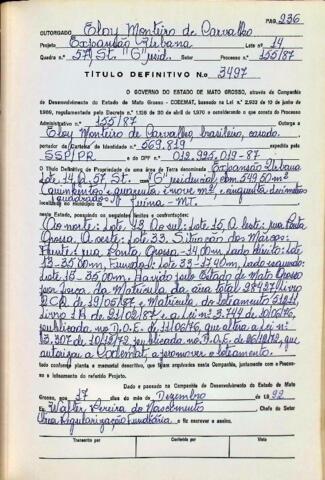 PAG. 236
OUTORGADO Eloy Monteiro de Carvalho
Projeto Expansão Urbana Lote n.º 14
Quadra n.º 57, St. "G" resid. Setor Processo n.º 155/87
TÍTULO DEFINITIVO N.o 3497
O GOVERNO DO ESTADO DE MATO GROSSO, através da Companhia
de Desenvolvimento do Estado de Mato Grosso - CODEMAT, baseado na Lei n.º
1969, regulamentada pelo Decreto n.º de 20 de abril de 1970 e considerando o que consta do Processo
Administrativo n.º 155/87 Outorga a
Eloy Monteiro de Carvalho, brasileiro, casado.
portador da Carteira de Identidade n.º 569.819
SSP/PR. e do CPF n.º 012.925.019-87
O Título Definitivo de Propriedade de uma área de terra denominada Expansão Urbana
Lote 14, Q. 57, St. "G" residencial com 549,50 m²
(Quinhentos e quarenta e nove m², e cinquenta decímetros
quadrados) Juína - MT.
neste Estado, possuindo os seguintes limites e confrontações:
(Ao norte: Lote 13. Ao sul: Lote 15. A leste: rua Ponta
Grossa. A oeste: Lote 33. Situação dos Marcos:
Frente: rua Ponta Grossa Lado direito: Lote
13 - 35,00m. Fundo: Lote 33 Lado esquerdo:
Lote 15 - 35,00m. Havido pelo Estado de Mato Grosso
por força da Matrícula da área total
de 19/05/87 e Matrícula do loteamento
Livro de 21/02/87 e a Lei n.º 3.744 de 10/06/76,
publicado no D.O.E. de 11/06/76 que altera a Lei n.º
3.307 de publicada no D.O.E. de
autorizou a Codemat, a promover o loteamento.
tudo conforme planta e memorial descritivo, que ficam arquivados nesta Companhia, juntamente com o Processo
e loteamento do referido Projeto.
Dado e passado na Companhia de Desenvolvimento do Estado de Mato
Grosso, aos 17 dias do mês de Dezembro de 1992
Eu Walter Pereira do Nascimento Chefe do Setor
Regularização Fundiária o fiz escrever e assino.
Transcrito por Conferido por Visto